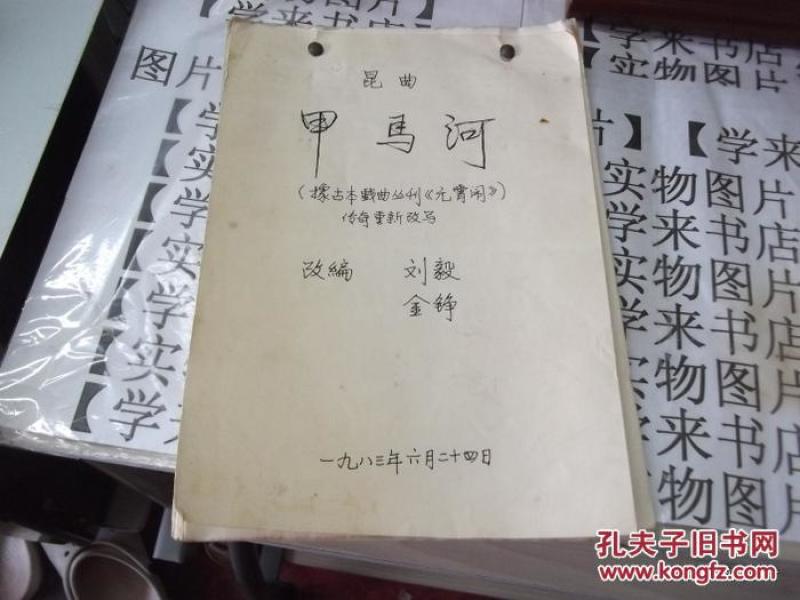 昆曲
甲马河
(据古本戏曲丛刊《元宵闹》)
传奇重新改写
改编 刘毅
金铮
一九八三年六月二十四日
图片
【学来书店
实物图片
【学
【实
【学
【实
【学
【实
【学
【学来书店
实物图片
片】【学来
实物图片
学来书店
实物图片
学来书店
实物图片
【学来书店
孔夫子旧书网
www.kongfz.com